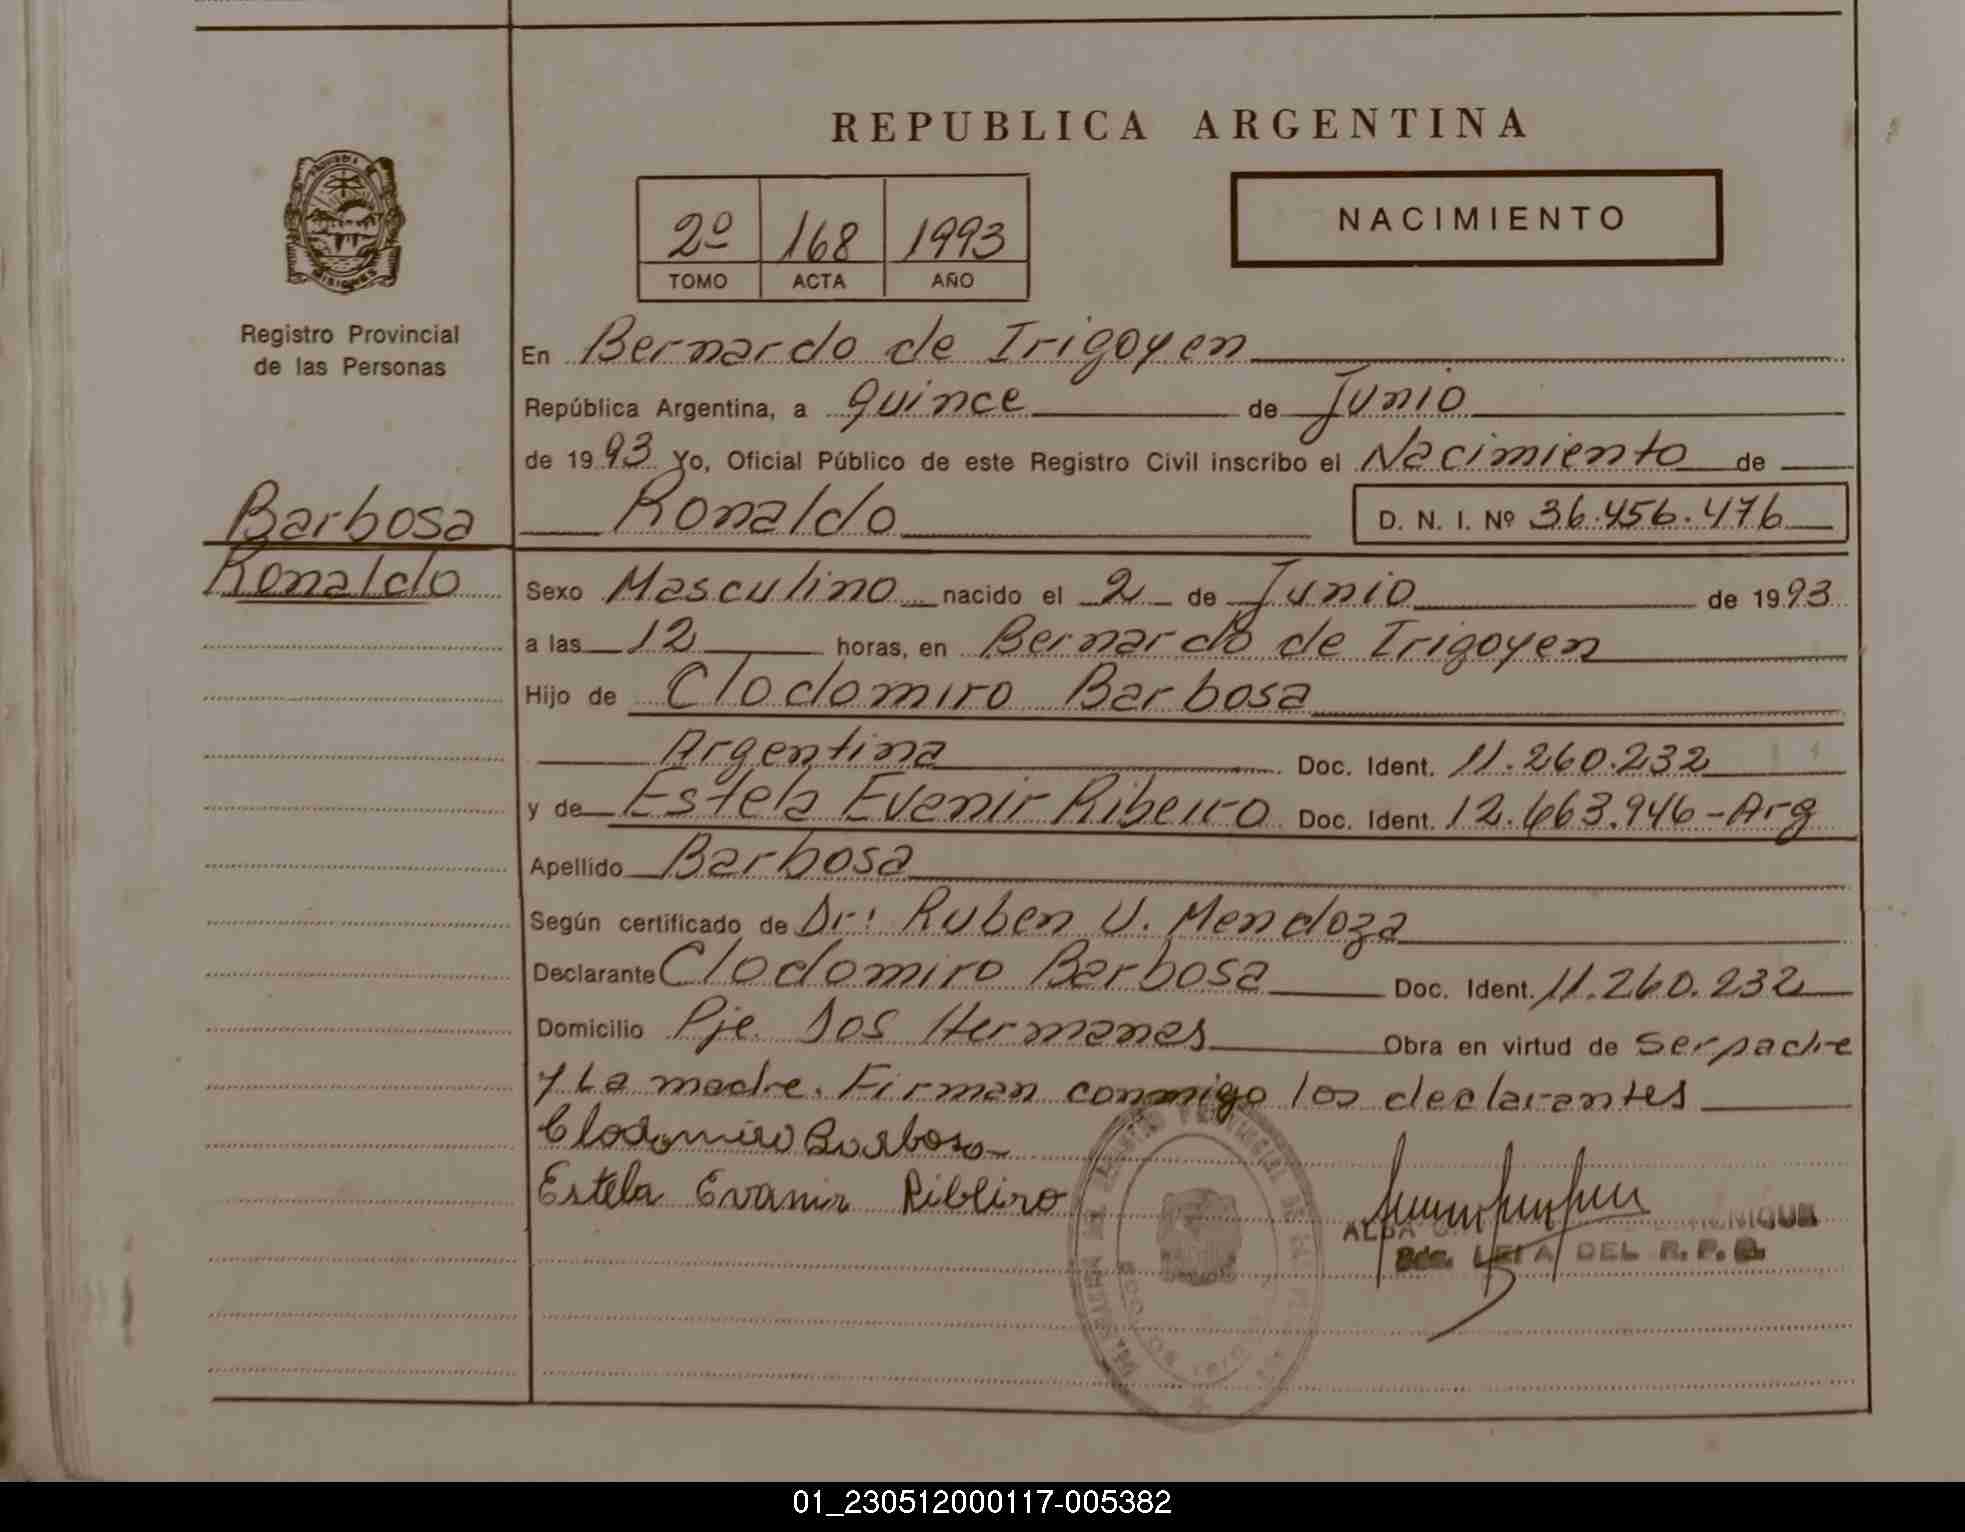 REPUBLICA ARGENTINA
2º 168 1993
TOMO ACTA AÑO
NACIMIENTO
MISIONES
Registro Provincial
de las Personas
Barbosa
Ronaldo
En Bernardo de Irigoyen
República Argentina, a quince de Junio
de 1993 Yo, Oficial Público de este Registro Civil inscribo el Nacimiento de
Ronaldo D. N. I. Nº 36.456.476
Sexo Masculino nacido el 2 de Junio de 1993
a las 12 horas, en Bernardo de Irigoyen
Hijo de Clodomiro Barbosa
Argentina Doc. Ident. 11.260.232
y de Estela Evenir Ribeiro Doc. Ident. 12.663.946-Arg
Apellido Barbosa
Según certificado de Dr: Ruben U. Mendoza
Declarante Clodomiro Barbosa Doc. Ident. 11.260.232
Domicilio Pje. Dos Hermanas Obra en virtud de ser padre
y La madre. Firman conmigo los declarantes
Clodomiro Barbosa
Estela Evanir Ribeiro
ALBA
DEL R. P.
01_230512000117-005382